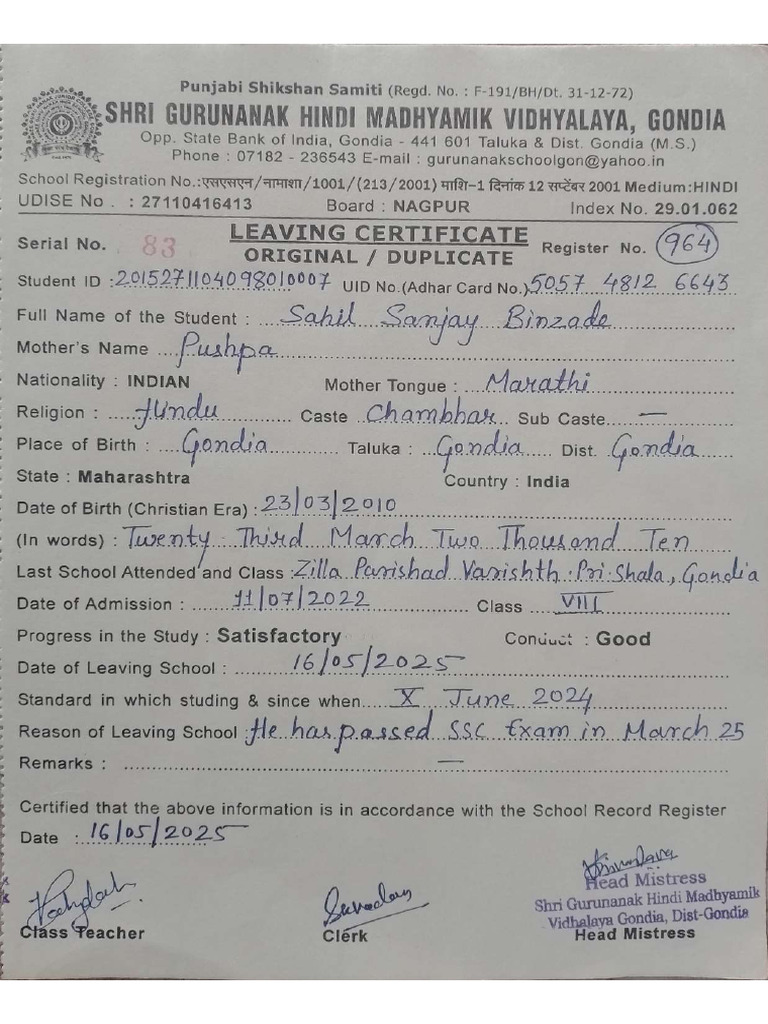 Punjabi Shikshan Samiti (Regd. No. : F-191/BH/Dt. 31-12-72)
SHRI GURUNANAK HINDI MADHYAMIK VIDHYALAYA, GONDIA
Opp. State Bank of India, Gondia - 441 601 Taluka & Dist. Gondia (M.S.)
Phone : 07182 - 236543 E-mail : gurunanakschoolgon@yahoo.in
School Registration No.:एसएसएन/नामाशा/1001/(213/2001) माशि-1 दिनांक 12 सप्टेंबर 2001 Medium:HINDI
UDISE No . : 27110416413 Board : NAGPUR Index No. 29.01.062
LEAVING CERTIFICATE
Serial No. 83 ORIGINAL / DUPLICATE Register No. 964
Student ID :2015271104098010007 UID No.(Adhar Card No.) 5057 4812 6643
Full Name of the Student : Sahil Sanjay Binzade
Mother's Name Pushpa
Nationality : INDIAN Mother Tongue : Marathi
Religion : Hindu Caste Chambhar Sub Caste —
Place of Birth : Gondia Taluka : Gondia Dist. Gondia
State : Maharashtra Country : India
Date of Birth (Christian Era) : 23/03/2010
(In words) : Twenty Third March Two Thousand Ten
Last School Attended and Class : Zilla Parishad Varishth Pri. Shala, Gondia
Date of Admission : 11/07/2022 Class VIII
Progress in the Study : Satisfactory Conduct : Good
Date of Leaving School : 16/05/2025
Standard in which studing & since when X June 2024
Reason of Leaving School : He has passed SSC Exam in March 25
Remarks : —
Certified that the above information is in accordance with the School Record Register
Date : 16/05/2025
Head Mistress
Shri Gurunanak Hindi Madhyamik
Vidhalaya Gondia, Dist-Gondia
Class Teacher Clerk Head Mistress